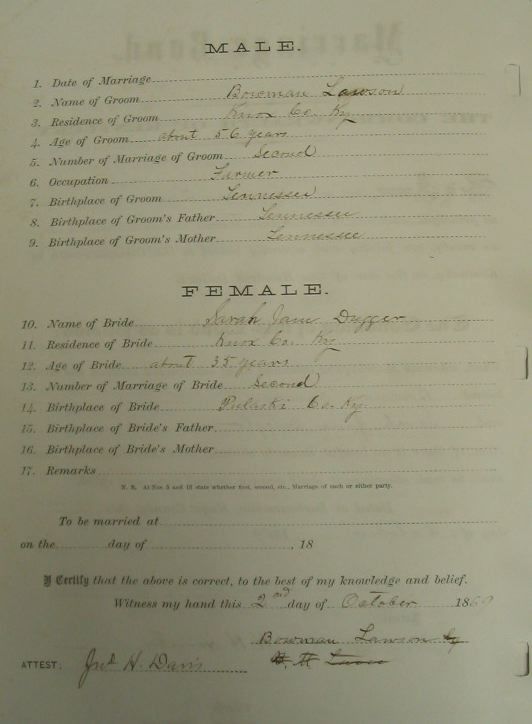 MALE.
1. Date of Marriage
2. Name of Groom Bowman Lawson
3. Residence of Groom Knox Co. Ky
4. Age of Groom about 56 years
5. Number of Marriage of Groom Second
6. Occupation Farmer
7. Birthplace of Groom Tennessee
8. Birthplace of Groom's Father Tennessee
9. Birthplace of Groom's Mother Tennessee
FEMALE.
10. Name of Bride Sarah Jane Dugger
11. Residence of Bride Knox Co. Ky
12. Age of Bride about 35 years
13. Number of Marriage of Bride Second
14. Birthplace of Bride Pulaski Co. Ky
15. Birthplace of Bride's Father
16. Birthplace of Bride's Mother
17. Remarks
N. B. At Nos 5 and 13 state whether first, second, etc., Marriage of each or either party.
To be married at
on the day of , 18
I Certify that the above is correct, to the best of my knowledge and belief.
Witness my hand this 2nd day of October 1869
Bowman Lawson
ATTEST: Jno H. Davis